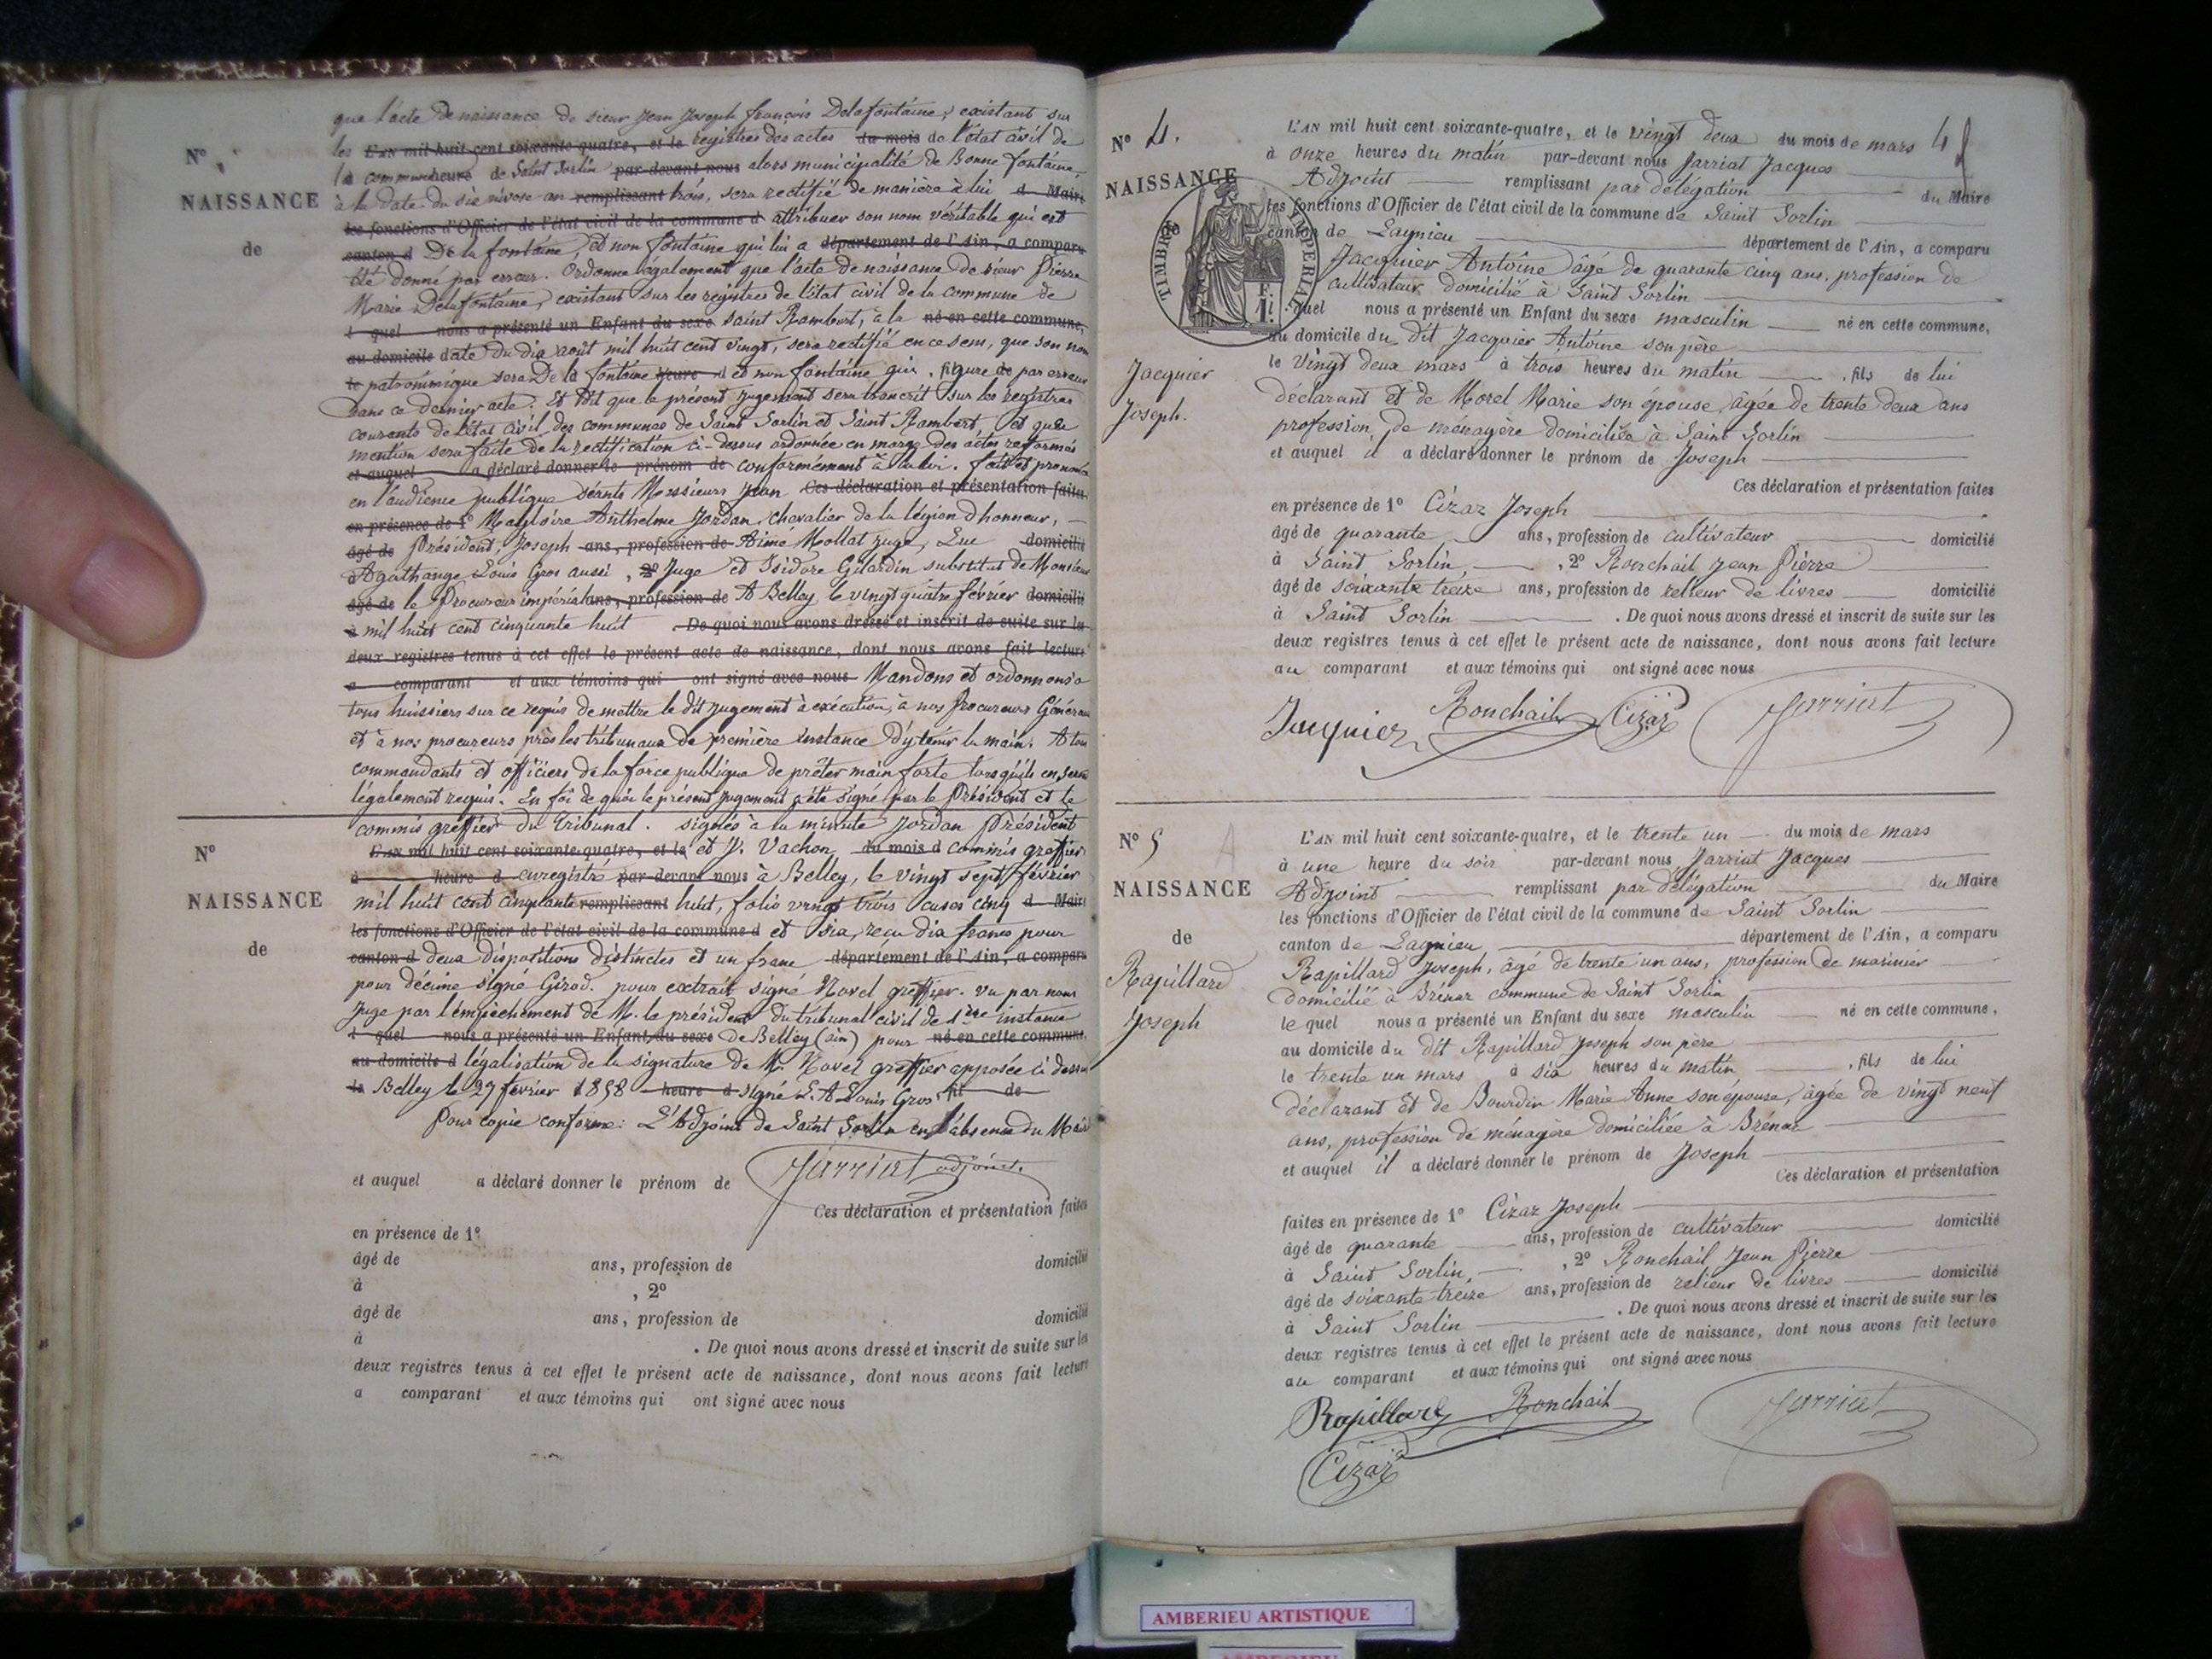 que l'acte de naissance de sieur Jean Joseph françois Delafontaine, existant sur
les L'AN mil huit cent soixante-quatre, et le registres des actes du mois de l'état civil de
la commune heure de Saint Sorlin par-devant nous alors municipalité de Bonne fontaine,
à la date du six nivose an remplissant trois, sera rectifié de manière à lui d Maire
les fonctions d'Officier de l'état civil de la commune d attribuer son nom véritable qui est
canton d De la fontaine, et non fontaine qui lui a département de l'Ain, a comparu
été donné par erreur. Ordonne également que l'acte de naissance de sieur Pierre
Marie Delafontaine, existant sur les registres de l'état civil de la commune de
l quel nous a présenté un Enfant du sexe saint Rambert, à la né en cette commune,
au domicile date du dix août mil huit cent vingt, sera rectifié en ce sens, que son nom
le patronimique sera De la fontaine heure d et non fontaine qui, figure de par erreur
dans ce dernier acte. Et dit que le présent jugement sera transcrit sur les registres
courants de l'état civil des communes de Saint Sorlin et Saint Rambert, et que
mention sera faite de la rectification ci-dessus ordonnée en marge des actes reformés
et auquel a déclaré donner le prénom de conformément à la loi. fait et prononcé
en l'audience publique séants Messieurs Jean Ces déclaration et présentation faites
en présence de 1° Magloire Anthelme Jordan, chevalier de la légion d'honneur,
âgé de Président, Joseph ans, profession de Aimé Mollat juge, Luc domicilié
à Agathange Louis Gros aussi , 2° Juge et Isidore Gilardin substitut de Monsieur
âgé de le Procureur impérial ans, profession de A Belley le vingt quatre février domicilié
à mil huit cent cinquante huit . De quoi nous avons dressé et inscrit de suite sur les
deux registres tenus à cet effet le présent acte de naissance, dont nous avons fait lecture
a comparant et aux témoins qui ont signé avec nous Mandons et ordonnons à
tous huissiers sur ce requis de mettre le dit jugement à exécution, à nos Procureurs Généraux
et à nos procureurs près les tribunaux de première instance d'y tenir la main. A tous
commandants et officiers de la force publique de prêter main forte lorsqu'ils en seront
légalement requis. En foi de quoi le présent jugement a été signé par le Président et le
commis greffier du tribunal. signés à la minute Jordan Président
L'AN mil huit cent soixante-quatre, et le et J. Vachon, du mois d commis greffier
à heure d enregistré par-devant nous à Belley, le vingt sept février
mil huit cent cinquante remplissant huit, folio vingt trois cases cinq d Maire
les fonctions d'Officier de l'état civil de la commune d et six, reçu dix francs pour
canton d deux dispositions distinctes et un franc département de l'Ain, a comparu
pour décime signé Girod. pour extrait signé Novel greffier. Vu par nous
Juge par l'empêchement de M. le président du tribunal civil de 1ère instance
l quel nous a présenté un Enfant du sexe de Belley (ain) pour né en cette commune,
au domicile d légalisation de la signature de Mr Novel greffier apposée ci dessus
le Belley le 27 fevrier 1858 heure d signé L. A Louis Gros fil de
Pour copie conforme: L'Adjoint de Saint Sorlin en l'absence du Maire
Jarriat adjoint.
et auquel a déclaré donner le prénom de
Ces déclaration et présentation faites
en présence de 1°
âgé de ans, profession de domicilié
à , 2°
âgé de ans, profession de domicilié
à . De quoi nous avons dressé et inscrit de suite sur les
deux registres tenus à cet effet le présent acte de naissance, dont nous avons fait lecture
a comparant et aux témoins qui ont signé avec nous
N°
NAISSANCE
de
N°
NAISSANCE
de
N° 4.
NAISSANCE
TIMBRE IMPERIAL
Jacquier
Joseph.
L'AN mil huit cent soixante-quatre, et le vingt deux du mois de mars
à onze heures du matin par-devant nous Jarriat Jacques
Adjoint remplissant par délégation du Maire
les fonctions d'Officier de l'état civil de la commune de Saint Sorlin
canton de Lagnieu département de l'Ain, a comparu
Jacquier Antoine âgé de quarante cinq ans, profession de
cultivateur domicilié à Saint Sorlin
l quel nous a présenté un Enfant du sexe masculin né en cette commune,
au domicile du dit Jacquier Antoine son père
le Vingt deux mars à trois heures du matin , fils de lui
déclarant et de Morel Marie son épouse, âgée de trente deux ans
profession de ménagère domiciliée à Saint Sorlin
et auquel il a déclaré donner le prénom de Joseph
Ces déclaration et présentation faites
en présence de 1° Cizar Joseph
âgé de quarante ans, profession de cultivateur domicilié
à Saint Sorlin, , 2° Ronchail Jean Pierre
âgé de soixante treize ans, profession de relieur de livres domicilié
à Saint Sorlin . De quoi nous avons dressé et inscrit de suite sur les
deux registres tenus à cet effet le présent acte de naissance, dont nous avons fait lecture
au comparant et aux témoins qui ont signé avec nous
Jacquier Ronchail Cizar Jarriat
N° 5
A
NAISSANCE
de
Rapillard
Joseph
L'AN mil huit cent soixante-quatre, et le trente un du mois de mars
à une heure du soir par-devant nous Jarriat Jacques
Adjoint remplissant par délégation du Maire
les fonctions d'Officier de l'état civil de la commune de Saint Sorlin
canton de Lagnieu département de l'Ain, a comparu
Rapillard Joseph, âgé de trente un ans, profession de marinier
domicilié à Brénaz commune de Saint Sorlin
le quel nous a présenté un Enfant du sexe masculin né en cette commune,
au domicile du dit Rapillard Joseph son père
le trente un mars à six heures du matin , fils de lui
déclarant et de Bourdin Marie Anne son épouse, âgée de vingt neuf
ans, profession de ménagère domiciliée à Brénaz
et auquel il a déclaré donner le prénom de Joseph
Ces déclaration et présentation
faites en présence de 1° Cizar Joseph
âgé de quarante ans, profession de cultivateur domicilié
à Saint Sorlin, , 2° Ronchail Jean Pierre
âgé de soixante treize ans, profession de relieur de livres domicilié
à Saint Sorlin . De quoi nous avons dressé et inscrit de suite sur les
deux registres tenus à cet effet le présent acte de naissance, dont nous avons fait lecture
au comparant et aux témoins qui ont signé avec nous
Rapillard Ronchail Jarriat
Cizar
AMBERIEU ARTISTIQUE
AMBERIEU